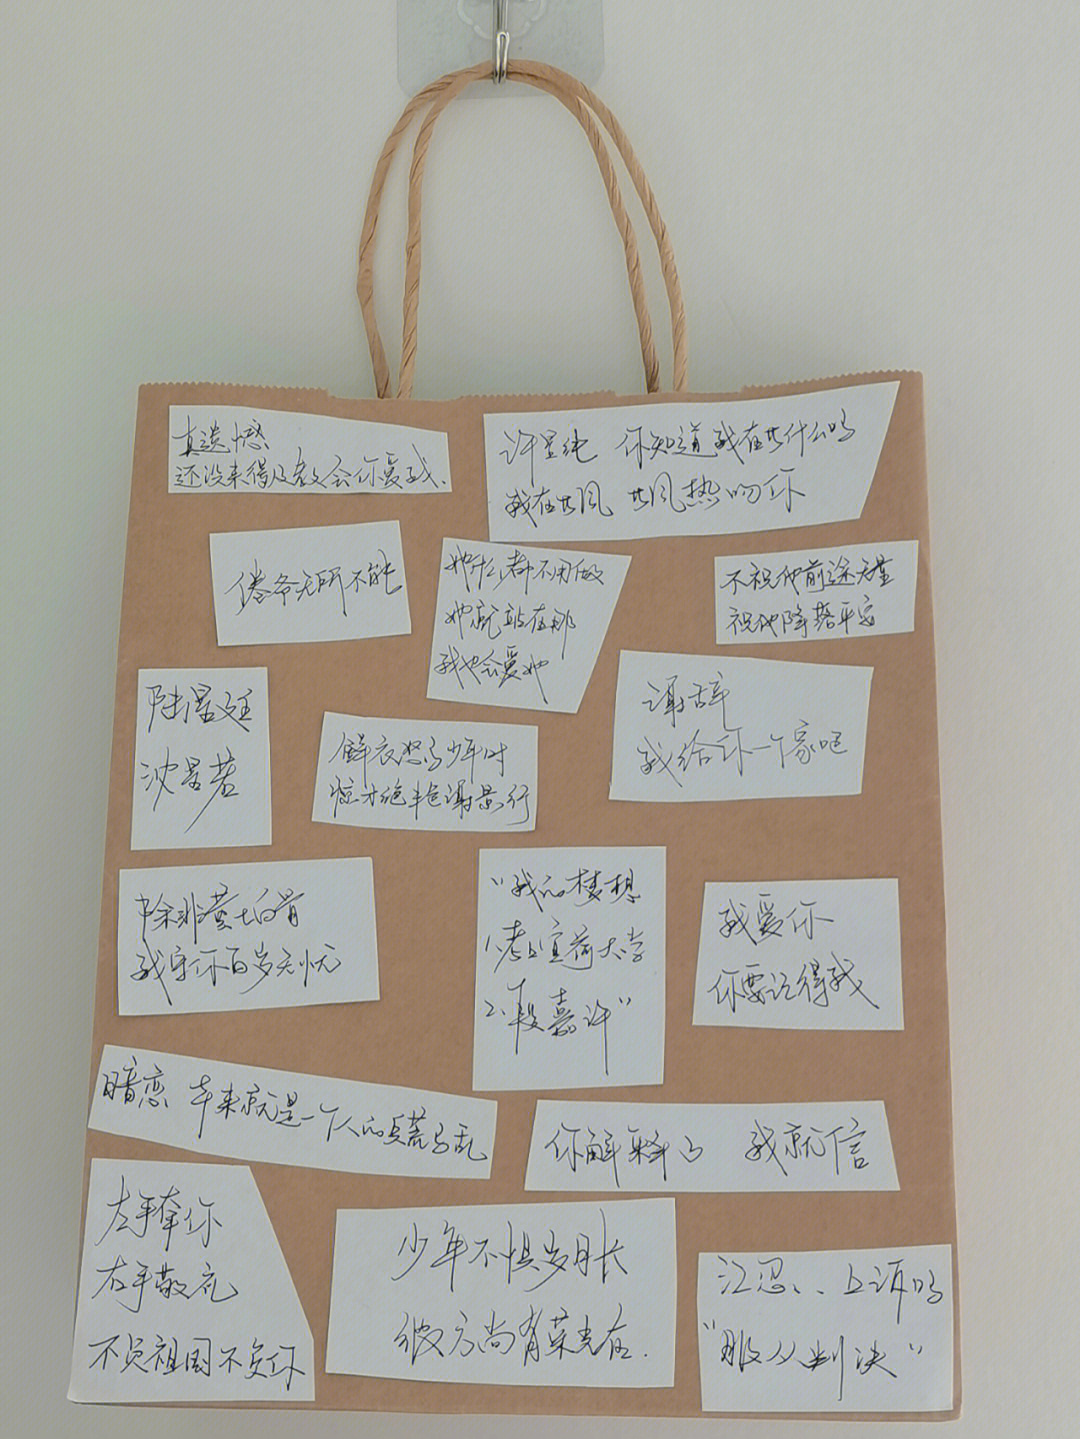 真遗憾
还没来得及教会你爱我.
许星纯 你知道我在共什么吗
我在共风 共风热吻你
倦爷无所不能
她什么都不用做
她就站在那
我也会爱她
不祝他前途无量
祝他降落平安
陆漫廷
沈若若
鲜衣怒马少年时
惊才绝艳谢景行
谢辞
我给你一个家吧
除非黄土白骨
我守你百岁无忧
"我的梦想
1.考上宜荷大学
2.段嘉许"
我爱你
你要记得我
暗恋 本来就是一个人的兵荒马乱
你解释了 我就信
左手牵你
右手敬礼
不负祖国不负你
少年不惧岁月长
彼方尚有荣光在.
江忍、上诉吗
"服从判决"